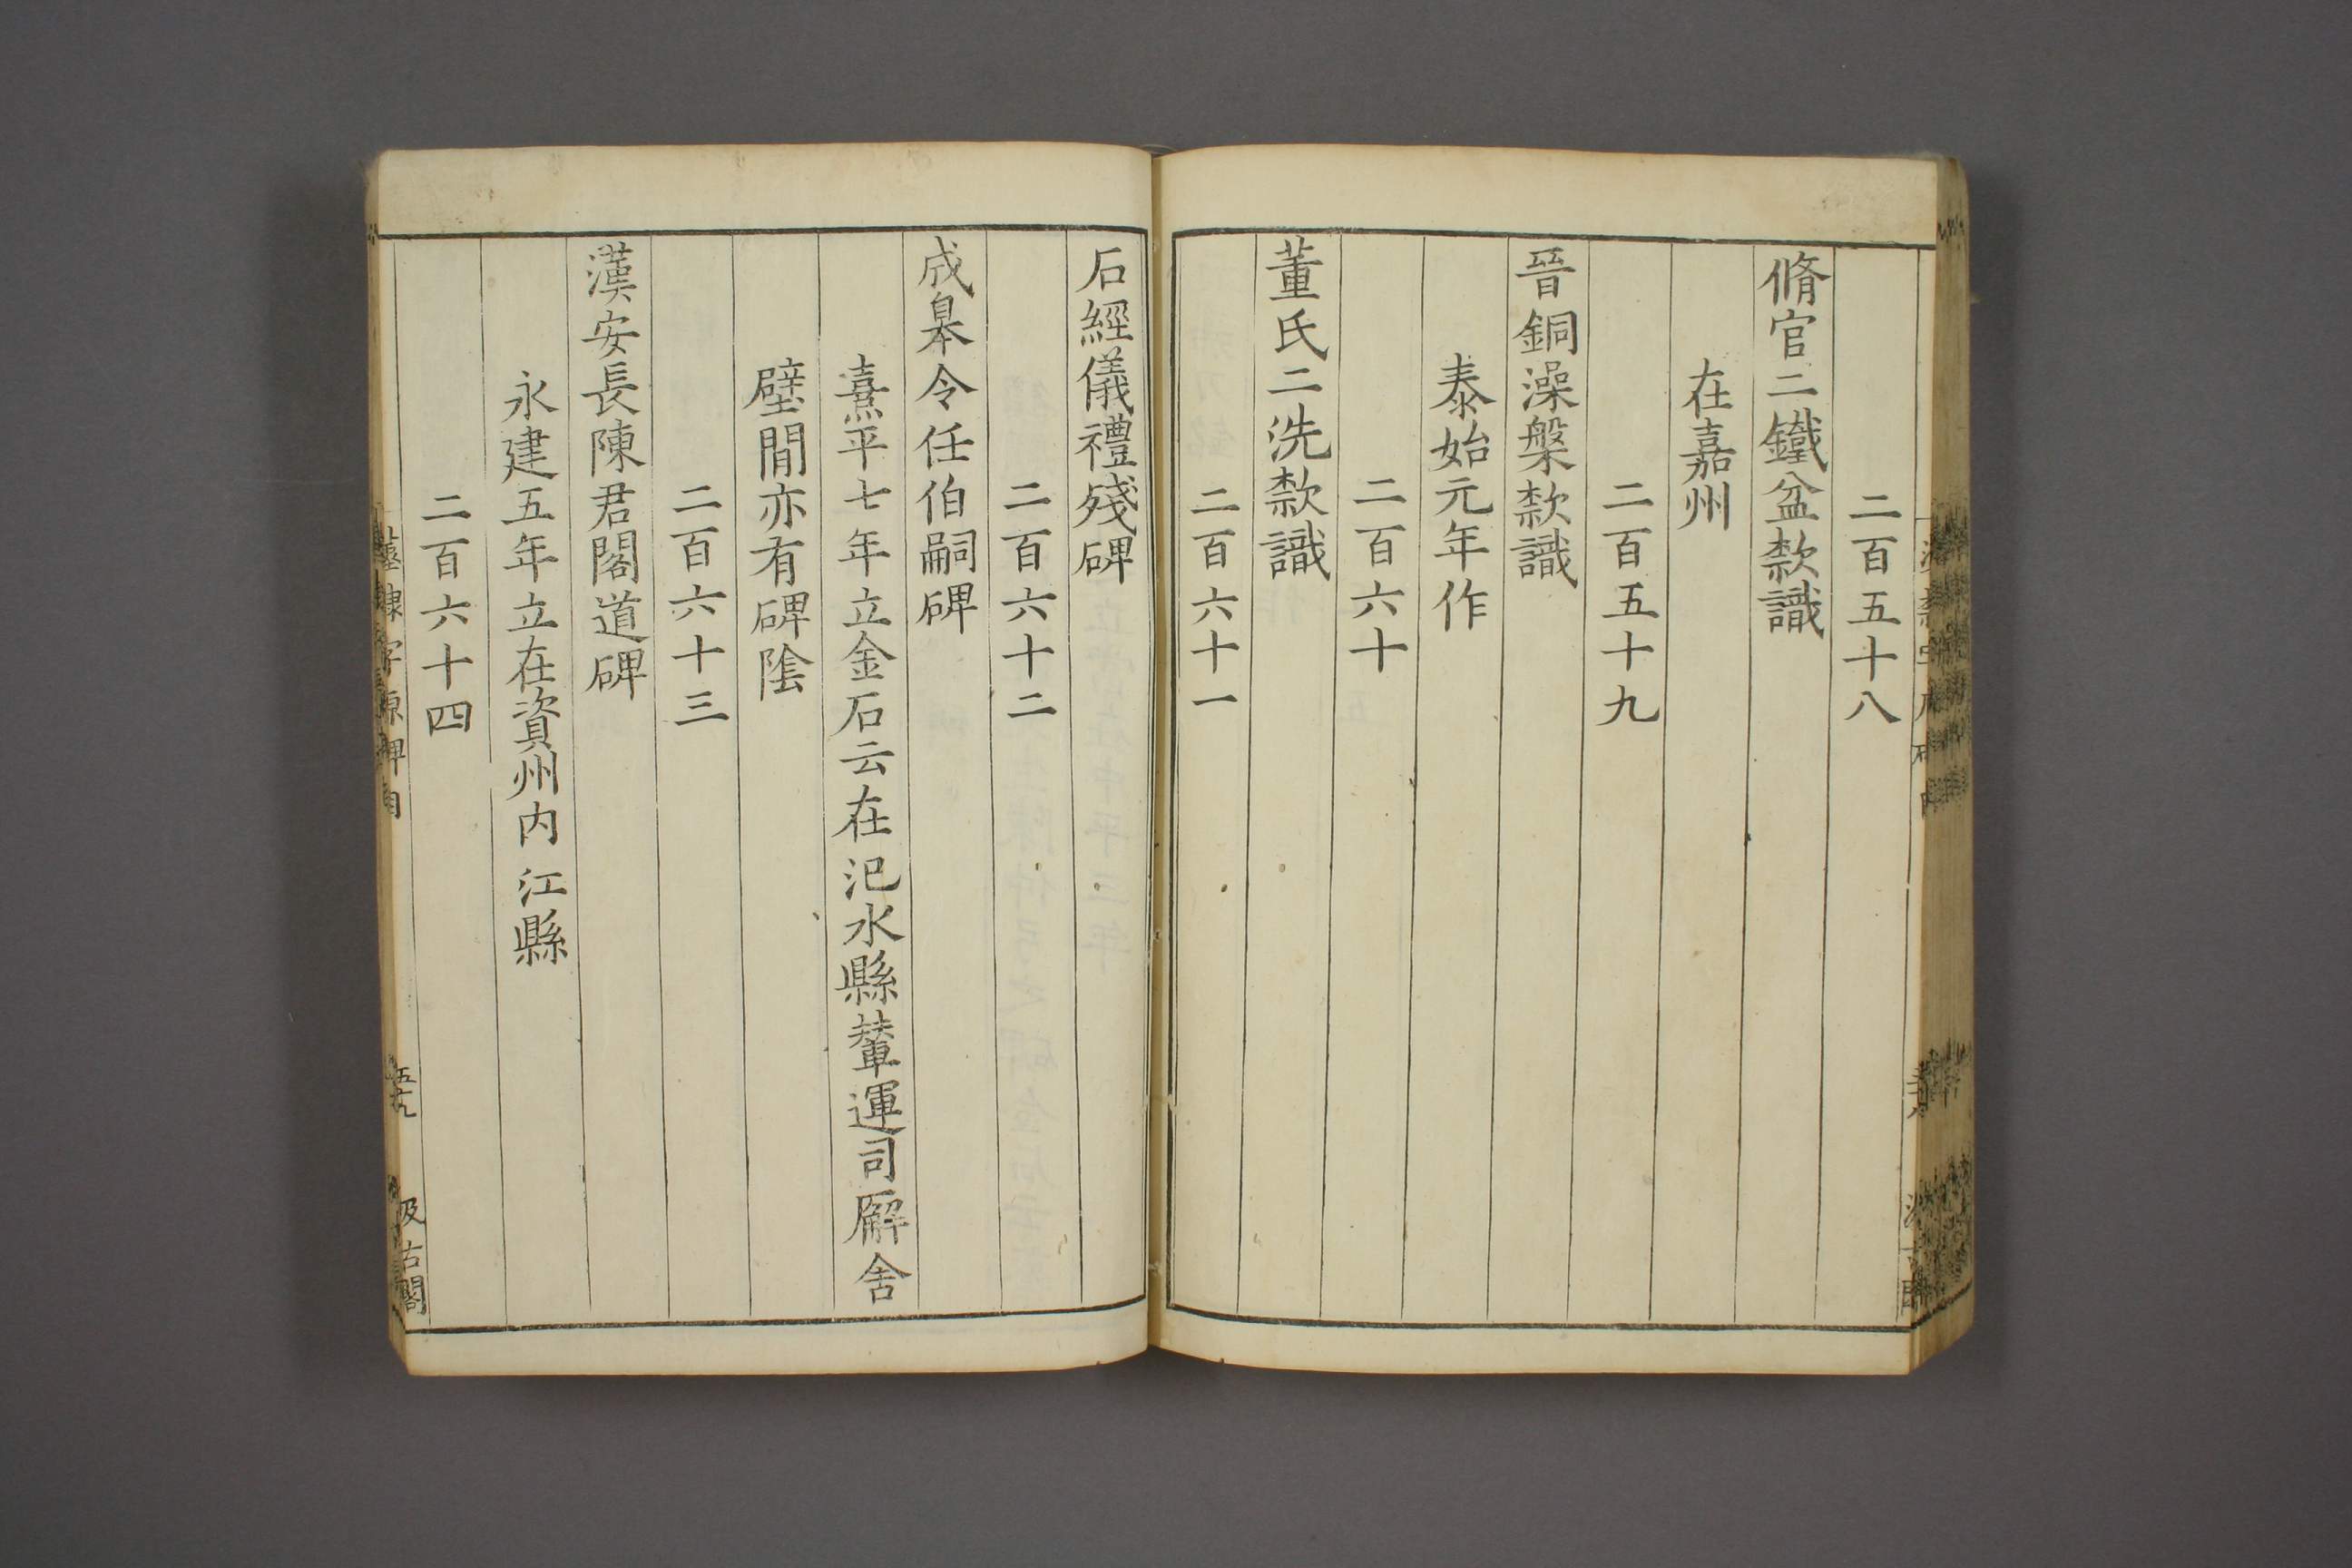 二百五十八
脩官二鐵盆欵識
在嘉州
二百五十九
晉銅澡槃欵識
泰始元年作
二百六十
董氏二洗欵識
二百六十一
石經儀禮殘碑
二百六十二
成臯令任伯嗣碑
熹平七年立金石云在汜水縣輦運司廨舍
壁間亦有碑陰
二百六十三
漢安長陳君閣道碑
永建五年立在資州内江縣
二百六十四
隸字原碑目
五十九
汲古閣